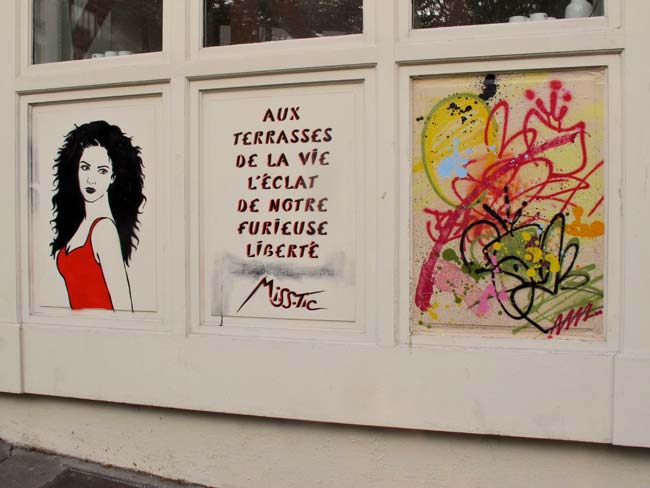 AUX
TERRASSES
DE LA VIE
L'ÉCLAT
DE NOTRE
FURIEUSE
LIBERTÉ
MISS.TIC